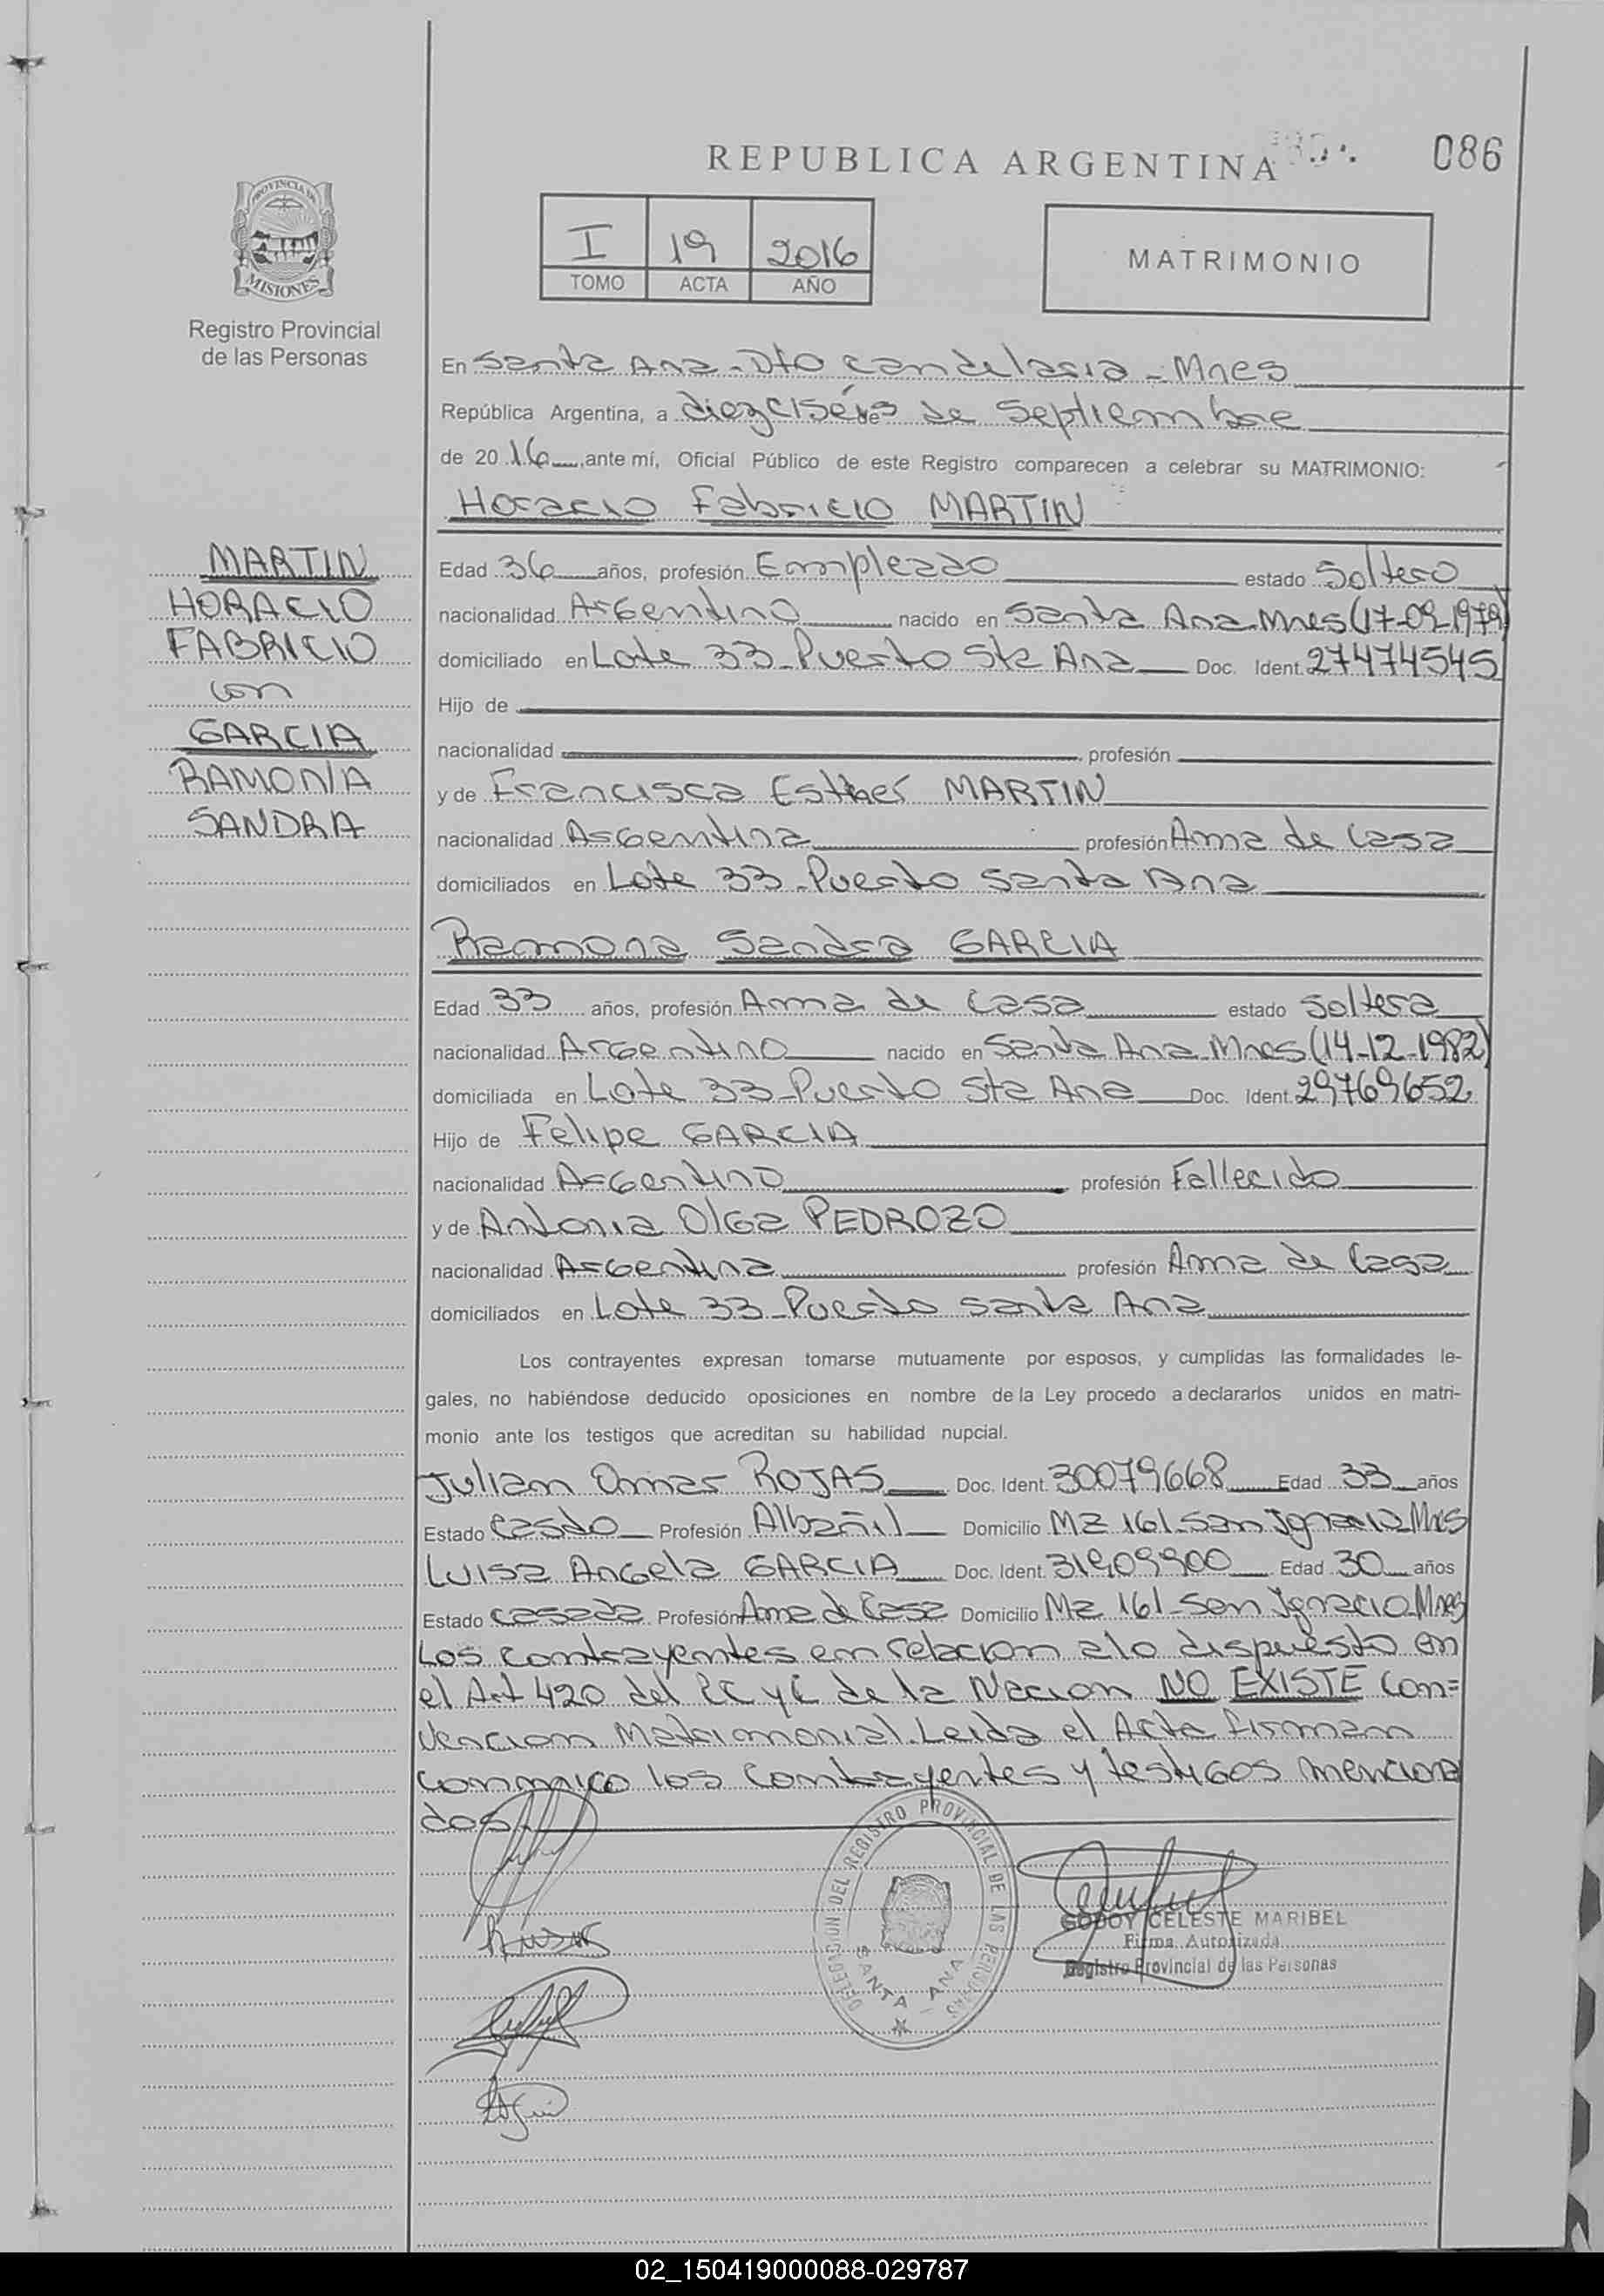 REPUBLICA ARGENTINA
086
PROVINCIA DE
MISIONES
Registro Provincial
de las Personas
I 19 2016
TOMO ACTA AÑO
MATRIMONIO
En Santa Ana - Dto Candelaria - Mnes
República Argentina, a dieciséis de Septiembre
de 2016, ante mí, Oficial Público de este Registro comparecen a celebrar su MATRIMONIO:
Horacio Fabricio MARTIN
MARTIN
HORACIO
FABRICIO
con
GARCIA
RAMONA
SANDRA
Edad 36 años, profesión Empleado estado Soltero
nacionalidad Argentino nacido en Santa Ana Mnes (17-09-1979)
domiciliado en Lote 33 - Puerto Sta Ana Doc. Ident. 27474545
Hijo de
nacionalidad , profesión
y de Francisca Esther MARTIN
nacionalidad Argentina profesión Ama de Casa
domiciliados en Lote 33 - Puerto Santa Ana
Ramona Sandra GARCIA
Edad 33 años, profesión Ama de Casa estado Soltera
nacionalidad Argentino nacido en Santa Ana Mnes (14-12-1982)
domiciliada en Lote 33 - Puerto Sta Ana Doc. Ident. 29769652
Hijo de Felipe GARCIA
nacionalidad Argentino profesión Fallecido
y de Antonia Olga PEDROZO
nacionalidad Argentina profesión Ama de Casa
domiciliados en Lote 33 - Puerto Santa Ana
Los contrayentes expresan tomarse mutuamente por esposos, y cumplidas las formalidades le-
gales, no habiéndose deducido oposiciones en nombre de la Ley procedo a declararlos unidos en matri-
monio ante los testigos que acreditan su habilidad nupcial.
Julian Omar ROJAS Doc. Ident. 30079668 Edad 33 años
Estado Casdo Profesión Albañil Domicilio Mz 161 - San Ignacio - Mnes
Luisa Angela GARCIA Doc. Ident. 31909900 Edad 30 años
Estado Casada Profesión Ama de Casa Domicilio Mz 161 - San Ignacio - Mnes
Los contrayentes en relacion a lo dispuesto en
el Art 420 del CC y C de la Nacion NO EXISTE Con=
vencion Matrimonial. Leida el Acta firman
conmigo los contrayentes y testigos menciona
dos.
DELEGACION DEL REGISTRO PROVINCIAL DE LAS PERSONAS
SANTA ANA
GODOY CELESTE MARIBEL
Firma Autorizada
Registro Provincial de las Personas
02_150419000088-029787